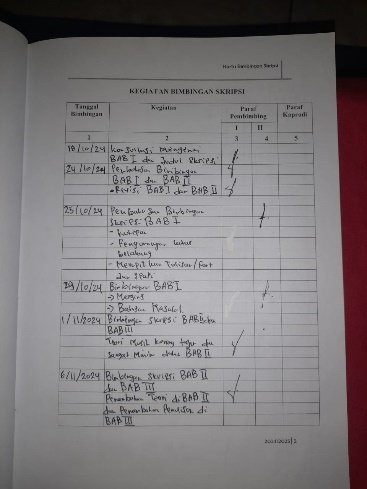 Kartu Bimbingan Skripsi
KEGIATAN BIMBINGAN SKRIPSI
Tanggal Bimbingan
Kegiatan
Paraf Pembimbing
Paraf Kaprodi
I II
1 2 3 4 5
18/10/24 Konsultasi mengenai
BAB I dan Judul Skripsi
24/10/24 Bimbingan
BAB I dan BAB II
Revisi BAB I dan BAB II
25/10/24 Bimbingan
Skripsi BAB I
- Kutipan
- Pengurangan latar
belakang
- Tulisan/Font
dan
29/10/24 Bimbingan BAB I
→
→ Batasan Masalah
1/11/2024 Bimbingan Skripsi BAB II dan
BAB III
Teori Masih Kurang dan
BAB II
6/11/2024 Bimbingan Skripsi BAB II
dan BAB III
Penambahan Teori di BAB II
dan Penambahan di
BAB III